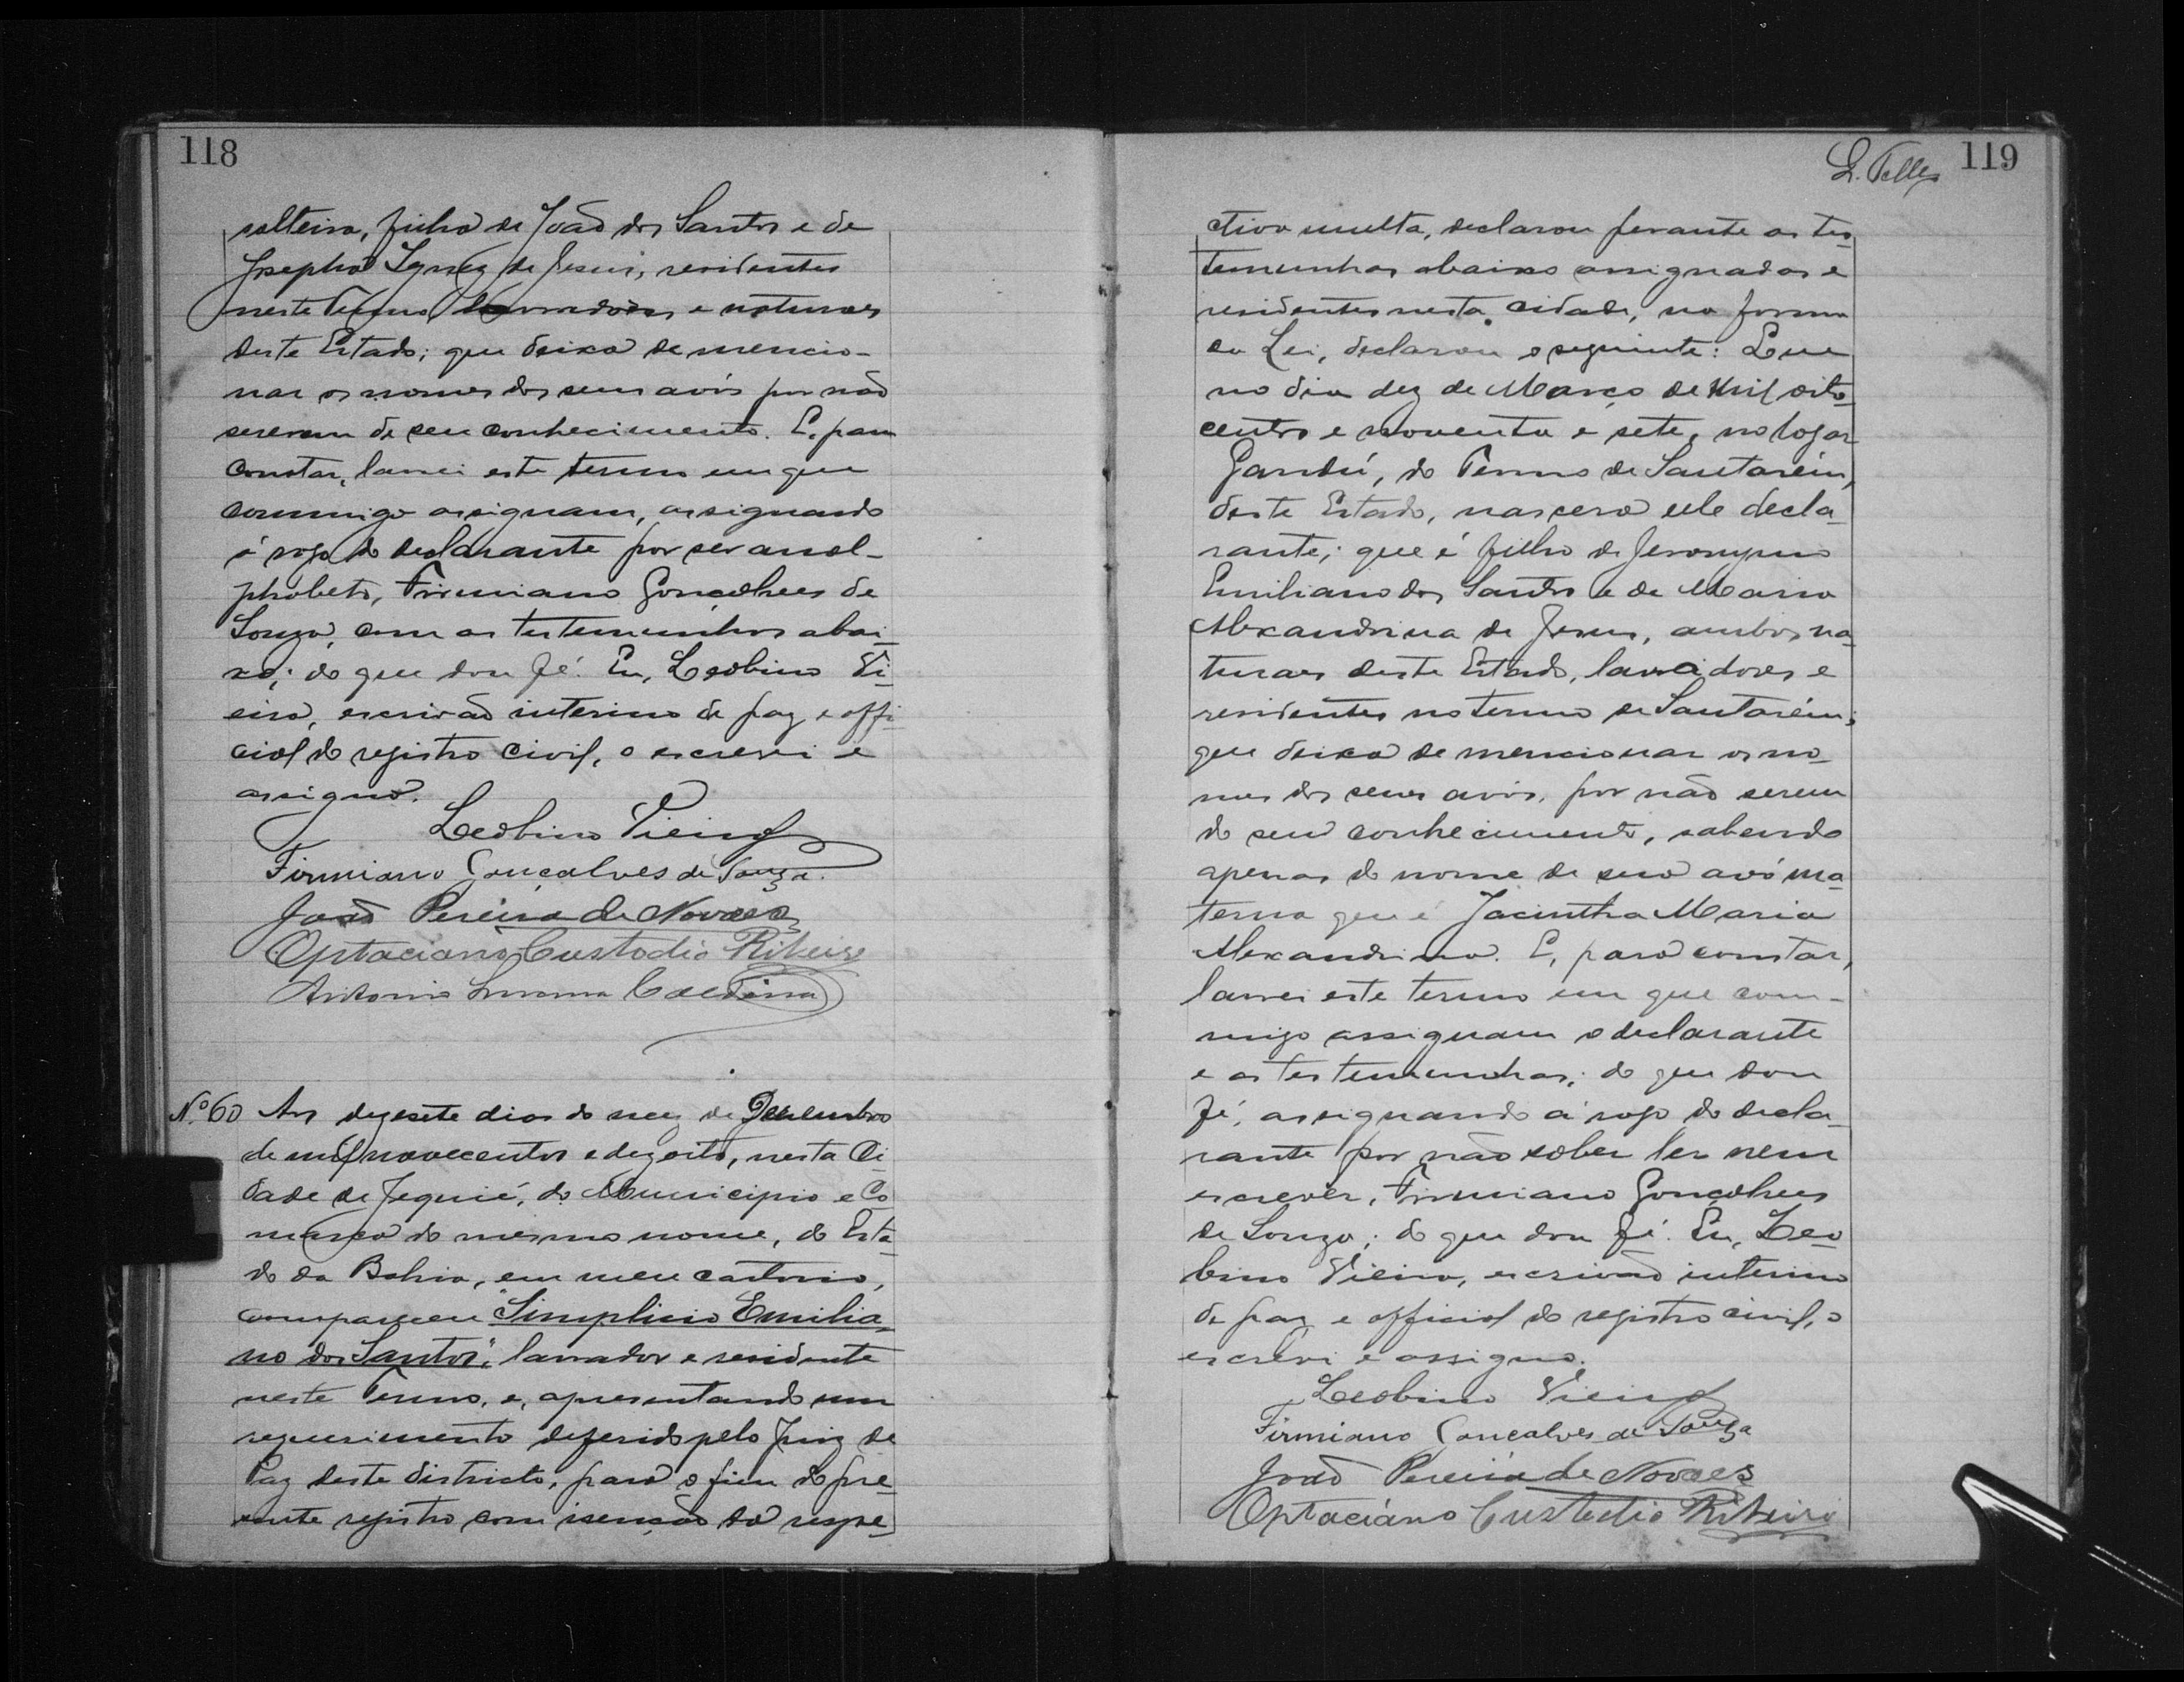 118
solteira, filha de João dos Santos e de
Josepha Ignez de Jesus, residentes
neste Termo, lavradores e naturaes
deste Estado; que deixa de mencio-
nar os nomes dos seus avós por não
serem de seu conhecimento. E, para
constar, lavrei este termo em que
commigo assignam, assignando
á rogo do declarante por ser anal-
phabeto, Firmiano Gonçalves de
Souza, com as testemunhas abai-
xo; do que dou fé. Eu, Leobino Vi-
eira, escrivão interino de paz e offi-
cial do registro civil, o escrevi e
assigno.
Leobino Vieira
Firmiano Gonçalves de Souza.
João Pereira de Novaes
Optaciano Custodio Ribeiro
Antonio
Nº 60 Aos dezesete dias do mez de Dezembro
de mil novecentos e dezoito, nesta Ci-
dade de Jequié, do Municipio e Co-
marca do mesmo nome, do Esta-
do da Bahia, em meu cartorio,
compareceu "Simplicio Emilia-
no dos Santos", lavrador e residente
neste Termo, e, apresentando um
requerimento deferido pelo Juiz de
Paz deste districto, para o fim do pre-
sente registro com isenção da respe-
L. Telles 119
ctiva multa, declarou perante as tes-
temunhas abaixo assignadas e
residentes nesta cidade, na forma
da Lei, declarou o seguinte: Que
no dia dez de Março de mil oito-
centos e noventa e sete, no logar
Gandú, do Termo de Santarém,
deste Estado, nascera elle decla-
rante; que é filho de Jeronymo
Emiliano dos Santos e de Maria
Alexandrina de Jesus, ambos na-
turaes deste Estado, lavradores e
residentes no termo de Santarém;
que deixa de mencionar os no-
mes dos seus avós, por não serem
do seu conhecimento, sabendo
apenas do nome de sua avó ma-
terna que é Jacintha Maria
Alexandrina. E, para constar,
lavrei este termo em que com-
migo assignam o declarante
e as testemunhas; do que dou
fé, assignando á rogo do decla-
rante por não saber ler nem
escrever, Firmiano Gonçalves
de Souza; do que dou fé. Eu, Leo-
bino Vieira, escrivão interino
de paz e official do registro civil, o
escrevi e assigno.
Leobino Vieira
Firmiano Goncalves de Souza
João Pereira de Novaes
Optaciano Custodio Ribeiro